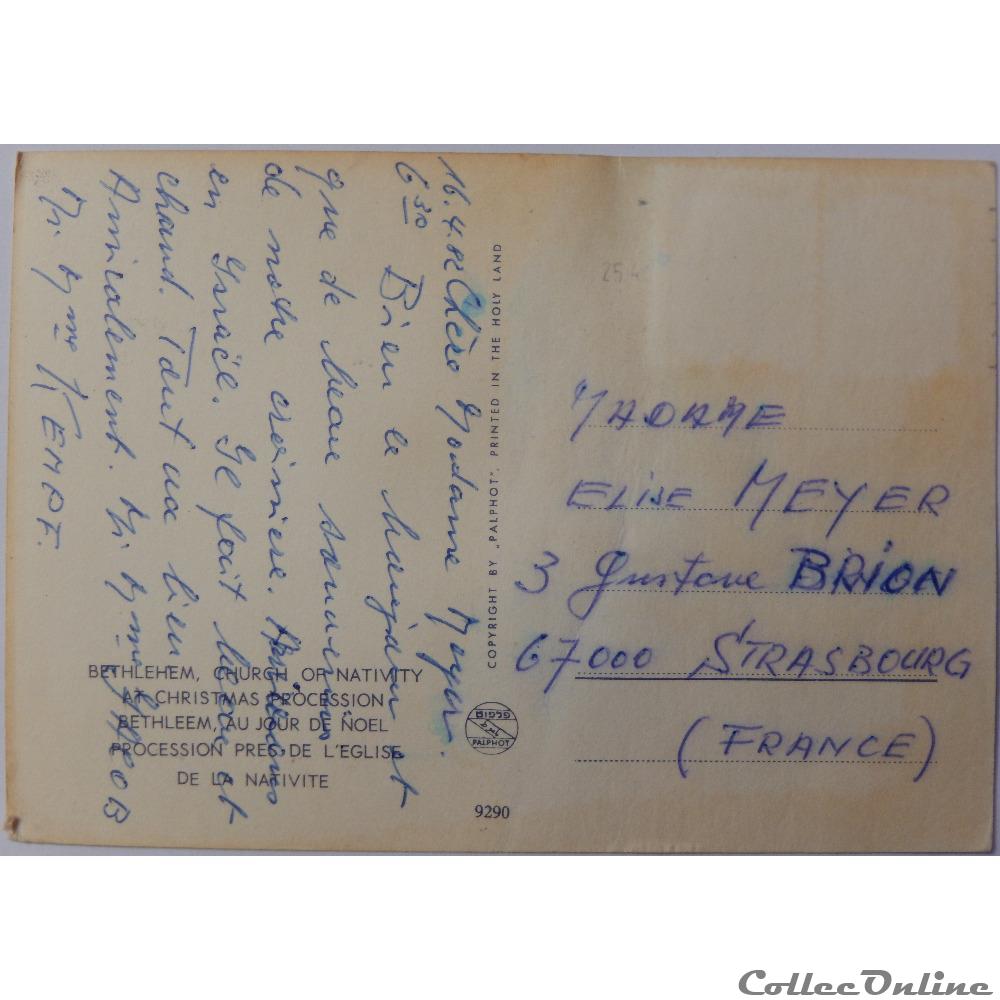 16.4.82 Chère Madame Meyer.
6³⁰ Bien le bonjour et
que de beau souvenirs
de notre croisière. Arrivons
en Israël. Il fait beau et
chaud. Tout va bien
Amicalement. Mr. & Mme
Mr. & Mme
BETHLEHEM, CHURCH OF NATIVITY
AT CHRISTMAS PROCESSION
BETHLEEM, AU JOUR DE NOEL
PROCESSION PRES DE L'EGLISE
DE LA NATIVITE
COPYRIGHT BY „PALPHOT”, PRINTED IN THE HOLY LAND
PALPHOT
9290
25.4
MADAME
ELISE MEYER
3 Gustave BRION
67000 STRASBOURG
(FRANCE)
CollecOnline